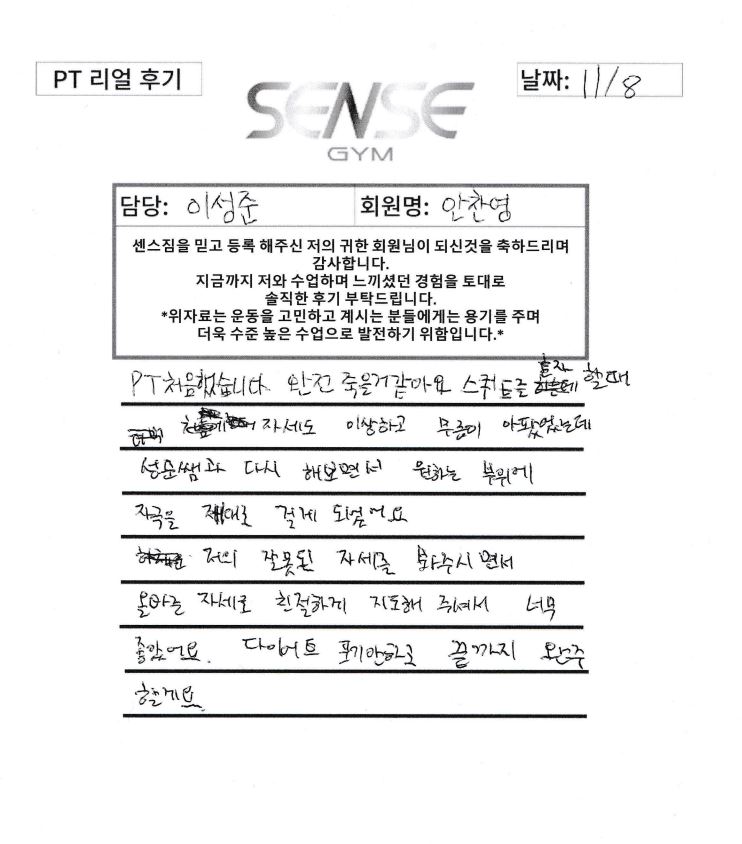 PT 리얼 후기
날짜: 11/8
SENSE
GYM
담당: 이성준
회원명: 안찬영
센스짐을 믿고 등록 해주신 저의 귀한 회원님이 되신것을 축하드리며
감사합니다.
지금까지 저와 수업하며 느끼셨던 경험을 토대로
솔직한 후기 부탁드립니다.
*위자료는 운동을 고민하고 계시는 분들에게는 용기를 주며
더욱 수준 높은 수업으로 발전하기 위함입니다.*
PT 처음했습니다. 완전 죽을거같아요 스쿼트를 혼자 할때
자세도 이상하고 무릎이 아팠었는데
성준쌤과 다시 해보면서 원하는 부위에
자극을 제대로 걸게 되었어요
저의 잘못된 자세를 봐주시면서
올바른 자세로 친절하게 지도해 주셔서 너무
좋았어요. 다이어트 포기안하고 끝까지 완주
할게요.